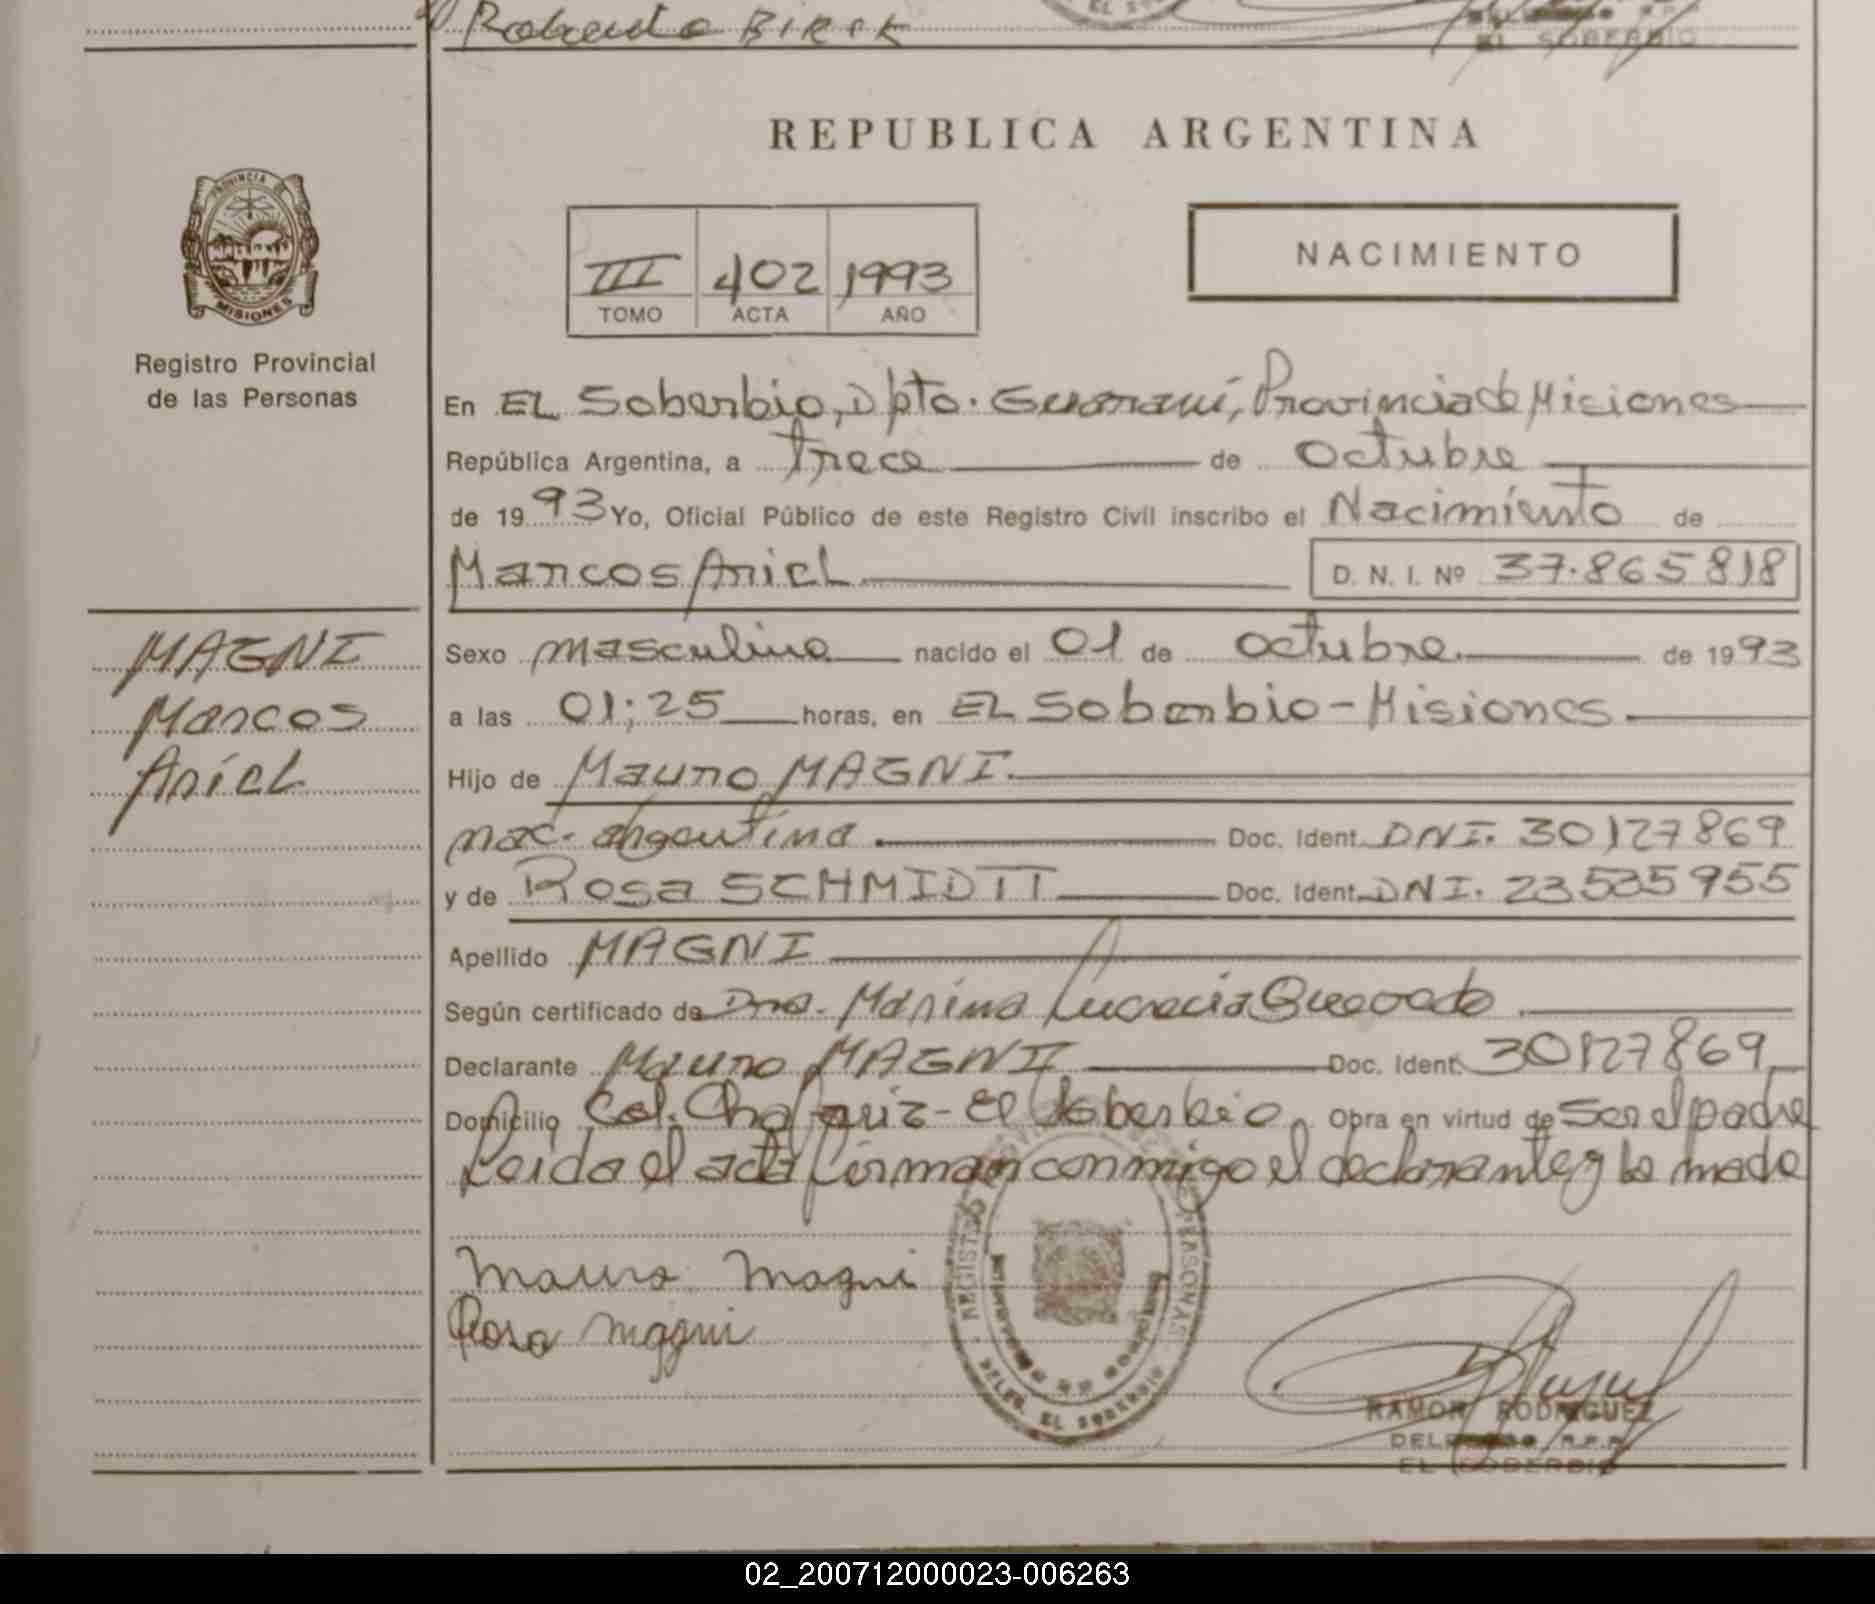 Roberto BIRCK
EL SOBERBIO
REPUBLICA ARGENTINA
PROVINCIA DE
MISIONES
Registro Provincial
de las Personas
III 402 1993
TOMO ACTA AÑO
NACIMIENTO
En EL Soberbio, Dpto. Guaraní, Provincia de Misiones
República Argentina, a trece de octubre
de 1993 Yo, Oficial Público de este Registro Civil inscribo el Nacimiento de
Marcos Ariel D. N. I. Nº 37.865818
MAGNI
Marcos
Ariel
Sexo masculino nacido el 01 de octubre de 1993
a las 01;25 horas, en EL Soberbio - Misiones
Hijo de Mauro MAGNI
nac. argentina Doc. Ident. DNI. 30127869
y de Rosa SCHMIDTT Doc. Ident. DNI. 23535955
Apellido MAGNI
Según certificado de Dra. Marina Lucrecia Quevedo
Declarante Mauro MAGNI Doc. Ident. 30127869
Domicilio Col. Chafariz - El Soberbio Obra en virtud de ser el padre
Leida el acta firman conmigo el declarante y la madre
Mauro Magni
Rosa Magni
REGISTRO PROVINCIAL DE LAS PERSONAS
DELEG. EL SOBERBIO
RAMON RODRIGUEZ
DELEGADO R.P.P.
EL SOBERBIO
02_200712000023-006263